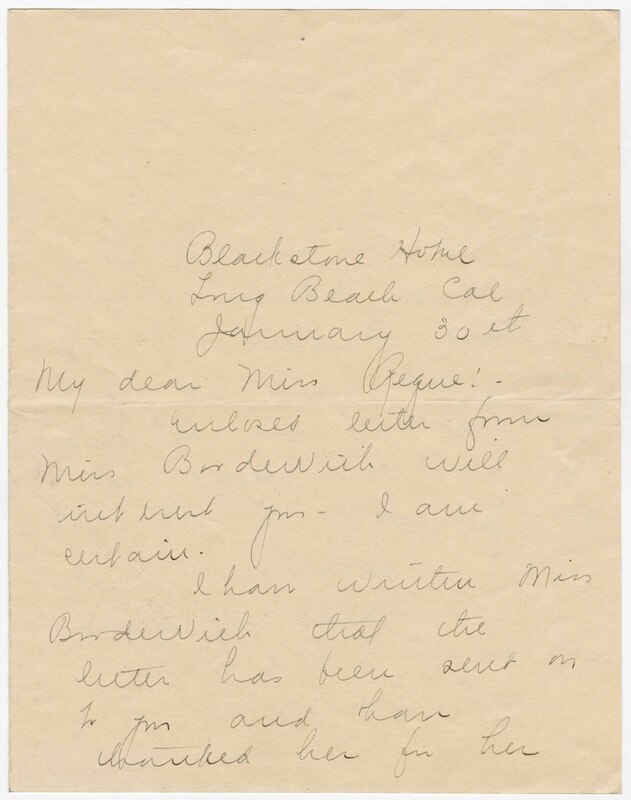 Blackstone Hotel
Long Beach Cal
January 30 et
My dear Miss Regue! -
enclosed letter from
Miss Bordewich will
interest you - I am
certain.
I have written Miss
Bordewich that the
letter has been sent on
to you and have
thanked her for her